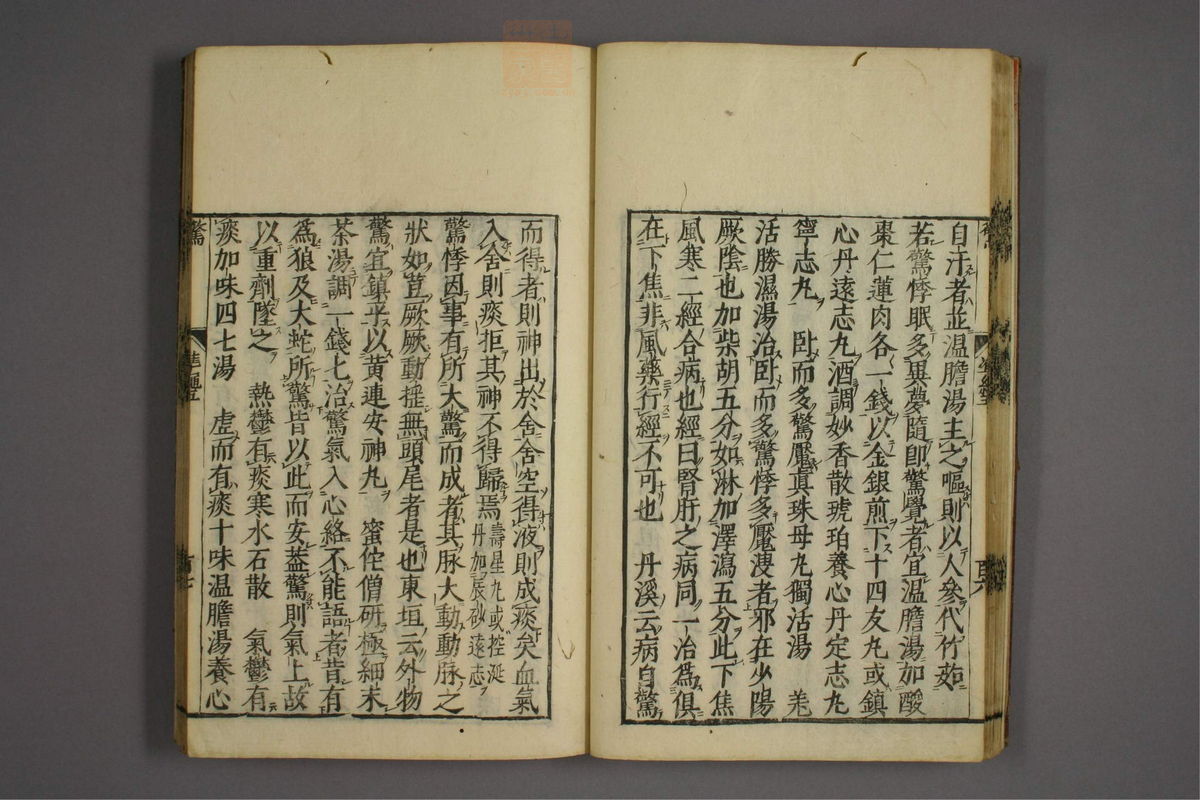 自汗者並温膽湯主之嘔則以人參代竹茹
若驚悸眠多異夢隨即驚覺者宜温膽湯加酸
棗仁蓮肉各一錢以金銀煎下十四友丸或鎮
心丹遠志丸酒調妙香散琥珀養心丹定志丸
寧志丸　卧而多驚魘真珠母丸獨活湯　羌
活勝濕湯治卧而多驚悸多魘溲者邪在少陽
厥陰也加柴胡五分如淋加澤瀉五分此下焦
風寒二經合病也經曰腎肝之病同一治爲俱
在下焦非風藥行經不可也　丹溪云病自驚
而得者則神出於舍舍空得液則成痰矣血氣
入舍則痰拒其神不得歸焉壽星丸或控涎丹加辰砂遠志
驚悸因事有所大驚而成者其脉大動動脉之
狀如荳厥厥動摇無頭尾者是也東垣云外物
驚宜鎮平以黄連安神丸　蜜佗僧研極細末
茶湯調一錢匕治驚氣入心絡不能語者昔有
爲狼及大蛇所驚皆以此而安葢驚則氣上故
以重劑墜之　熱鬱有痰寒水石散　氣鬱有
痰加味四七湯　虚而有痰十味温膽湯養心